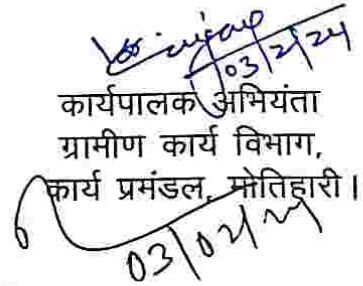 03/2/24
कार्यपालक अभियंता
ग्रामीण कार्य विभाग,
कार्य प्रमंडल, मोतिहारी।
03/02/24